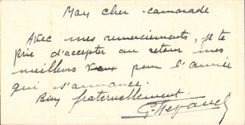 Mon cher camarade
Avec mes remerciements, je te
prie d'accepter au retour mes
meilleurs vœux pour l'année
qui s'annonce.
Bien fraternellement